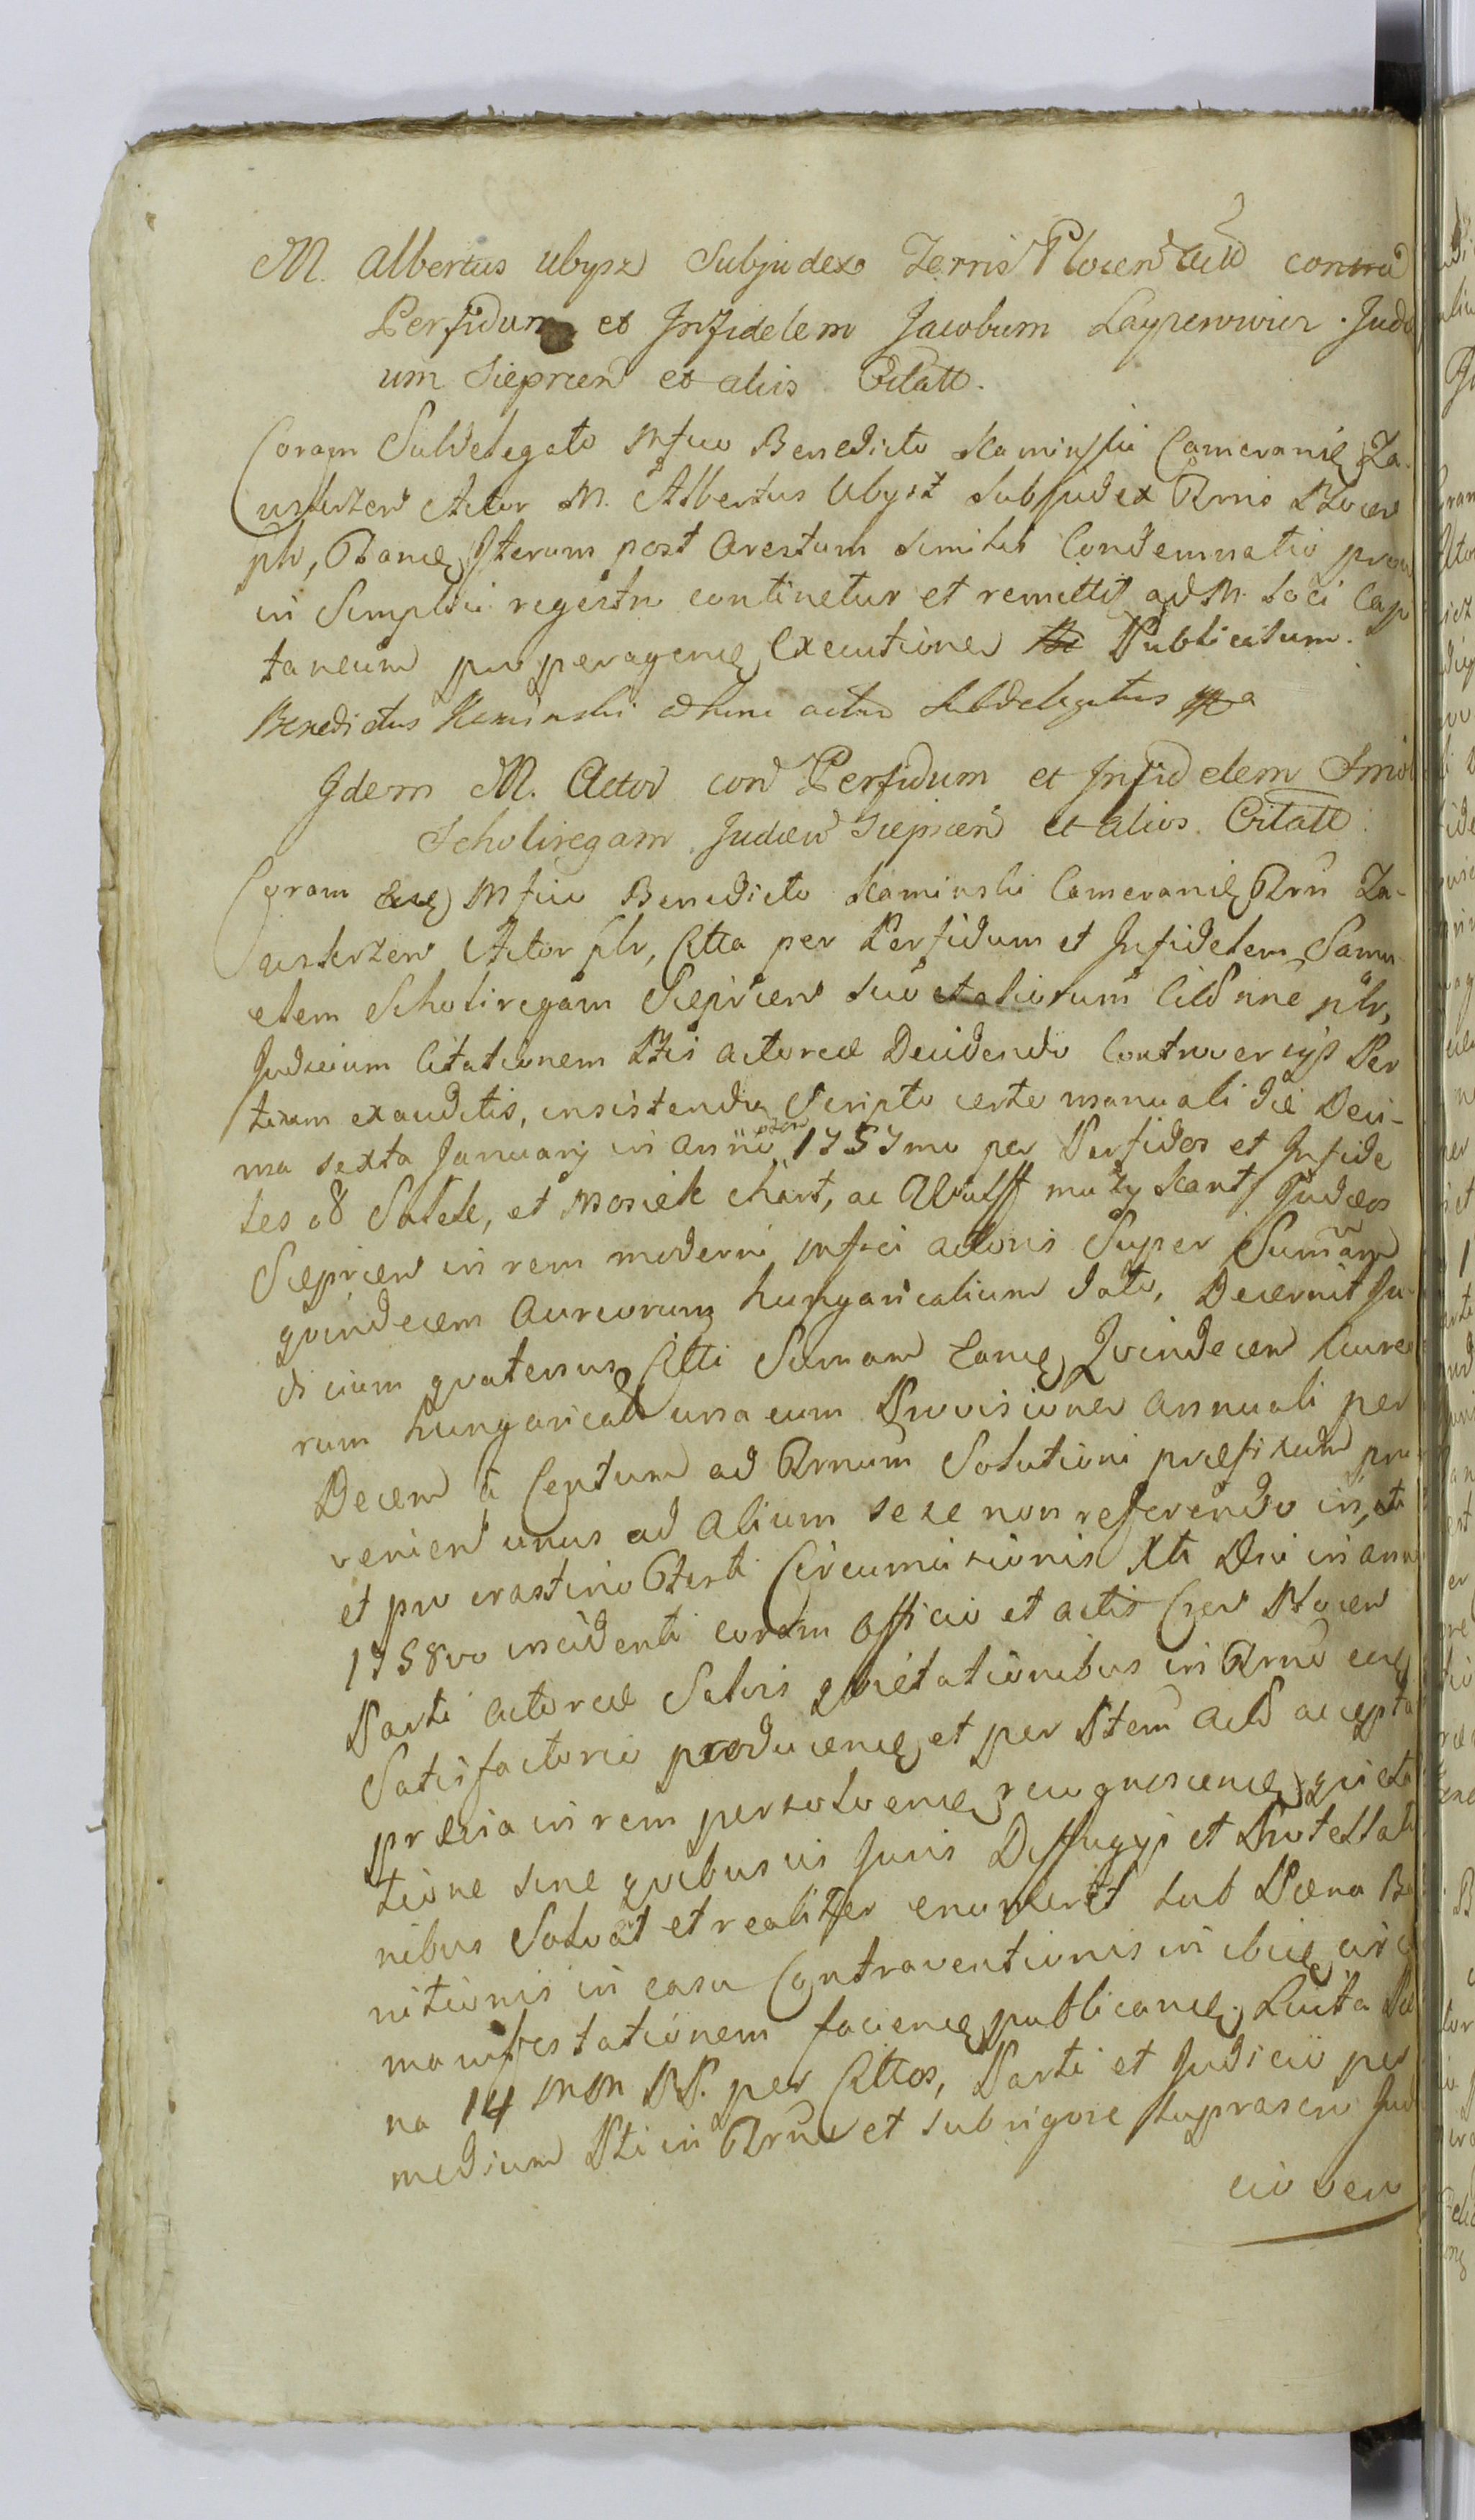 M. Albertus Ubysz Subjudex Terris Plocen Actd contra
Perfidum et Infidelem Jacobum Layzerowicz Jude
um Sieprcen et aliis Citatt.
Coram Subdelegato Mfico Benedicto Kaminski Camerarie Za
uskrzen Actor M. Albertus Ubysz Subjudex Rrnis Plocen
plr, Iterum post Arestum similis Condemnatio prou
in Simplici regestro continetur et remittit ad M. Loci Cap
taneum pro peragene Executione Publicatum.
Benedictus Kaminski ad hunc actum Subdelegatus mpa
Idem M. Actor con Perfidum et Infidelem Smol
Scholiregam Judæum Sieprcen et alios Citatt.
Coram eoq Mfico Benedicto Kaminski Camerarie Rrn Za-
uskrzen Actor plr, Citta per Perfidum et Infidelem Samu
elem Scholiregam Sieprcen suo et aliorum Citd nne plr,
Judicium Citationem Ptis actoreæ Decidendo Controversijs Par
tium exauditis, insistendo Scripto certo manuali die Deci-
ma sexta Januarij in Anno 1757mo per Perfidos et Infide
les os Salek, et Mosiek chart, ac Wulff maly Kant Judæos
Sieprcen in rem moderni Mfici actoris Super Summam
quindecem Aureorum hungaricalium dato, Decernit Ju-
dicium quatenus Citti Sumam eance Quindecem Aureo
rum hungaricall una cum Provisione annuali per
Decem a Centum ad Rrnum Solutioni præfixum pro
venien unus ad alium sese non referendo in, et
et pro crastino festi Circumcisionis Xti Dni in anno
1758vo incidenti coram officio et actis Cren Plocen
Parti actoreæ Salvis quietationibus in Rrno
Satisfactorio producene, et per Ptem actd accepta
prævia in rem persolvene recognoscene, quieta
tione sine quibusvis Juris Diffugijs et Protestatio
nibus Solvat et realiter enumeret sub Pæna Ba
nitionis in casu Contraventionis in
manifestationem faciene, publicane. Luita Pæ
na 14 MM PP. per Cittos, Parti et Judicio per
medium Pti in Rrno et sub rigore suprascri Jud
cio vero